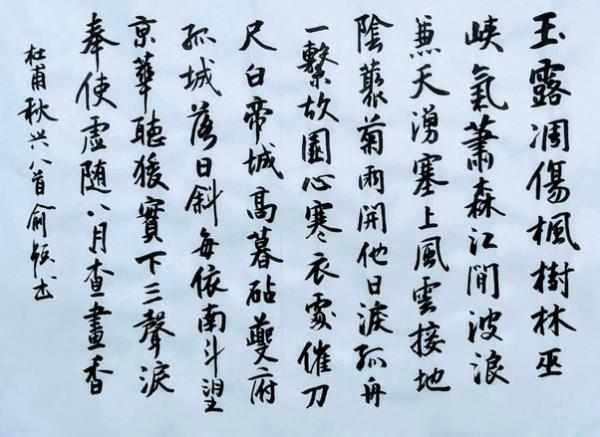 玉露凋傷楓樹林巫
峽氣蕭森江間波浪
兼天湧塞上風雲接地
陰叢菊兩開他日淚孤舟
一繫故園心寒衣處催刀
尺白帝城高暮砧夔府
孤城落日斜每依南斗望
京華聽猿實下三聲淚
奉使虛隨八月查畫香
杜甫秋兴八首俞书